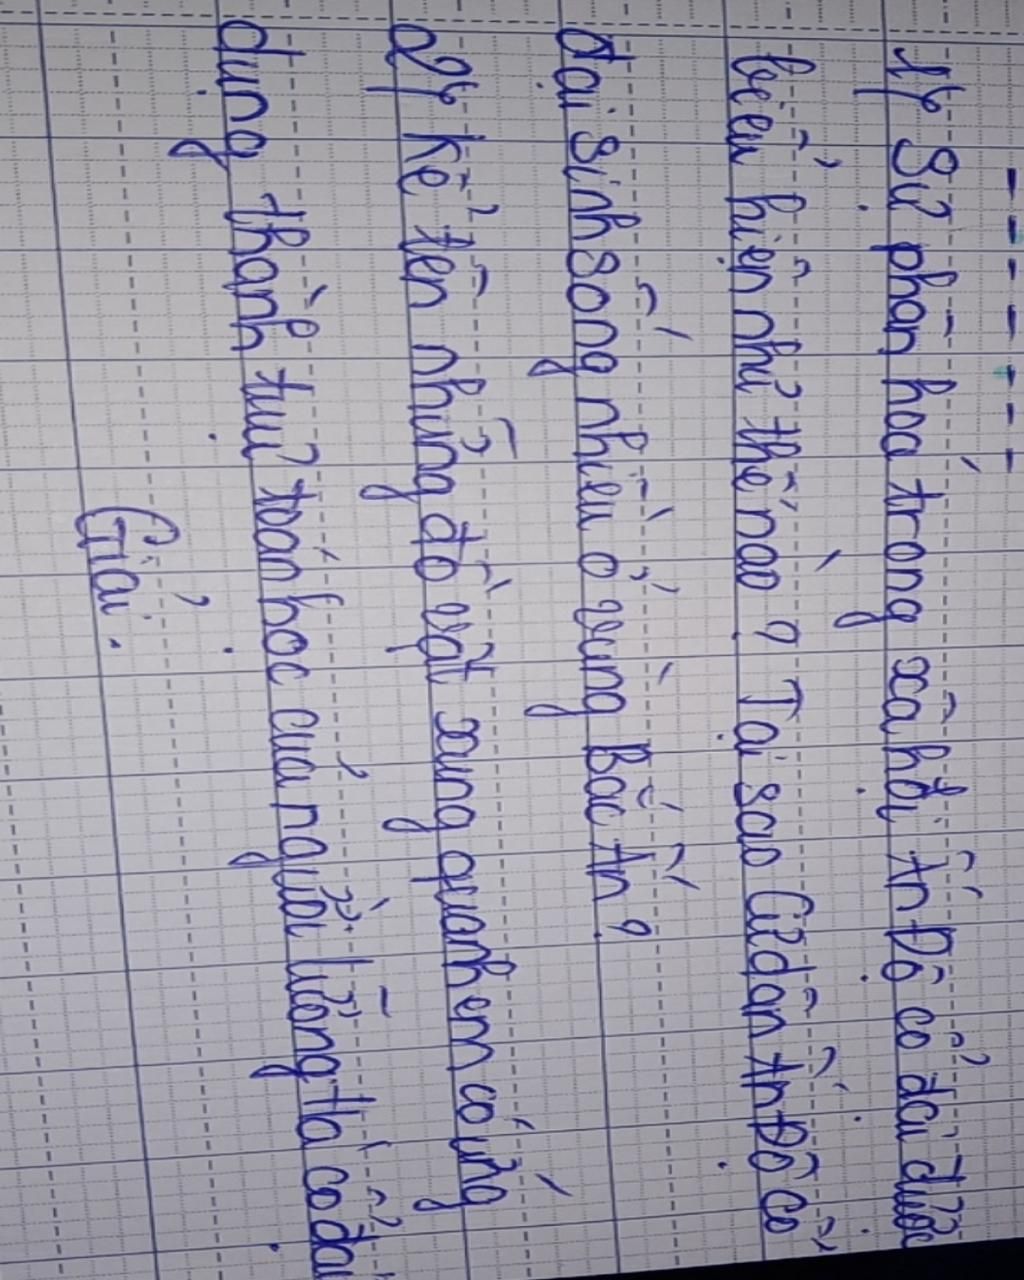 1, Sự phân hoá trong xã hội Ấn Độ cổ đại được
biểu hiện như thế nào? Tại sao Cư dân Ấn Độ cổ
đại sinh sống nhiều ở vùng Bắc Ấn?
2, Kể tên những đồ vật xung quanh em có ứng
dụng thành tựu toán học của người Lưỡng Hà cổ đại
Giải: